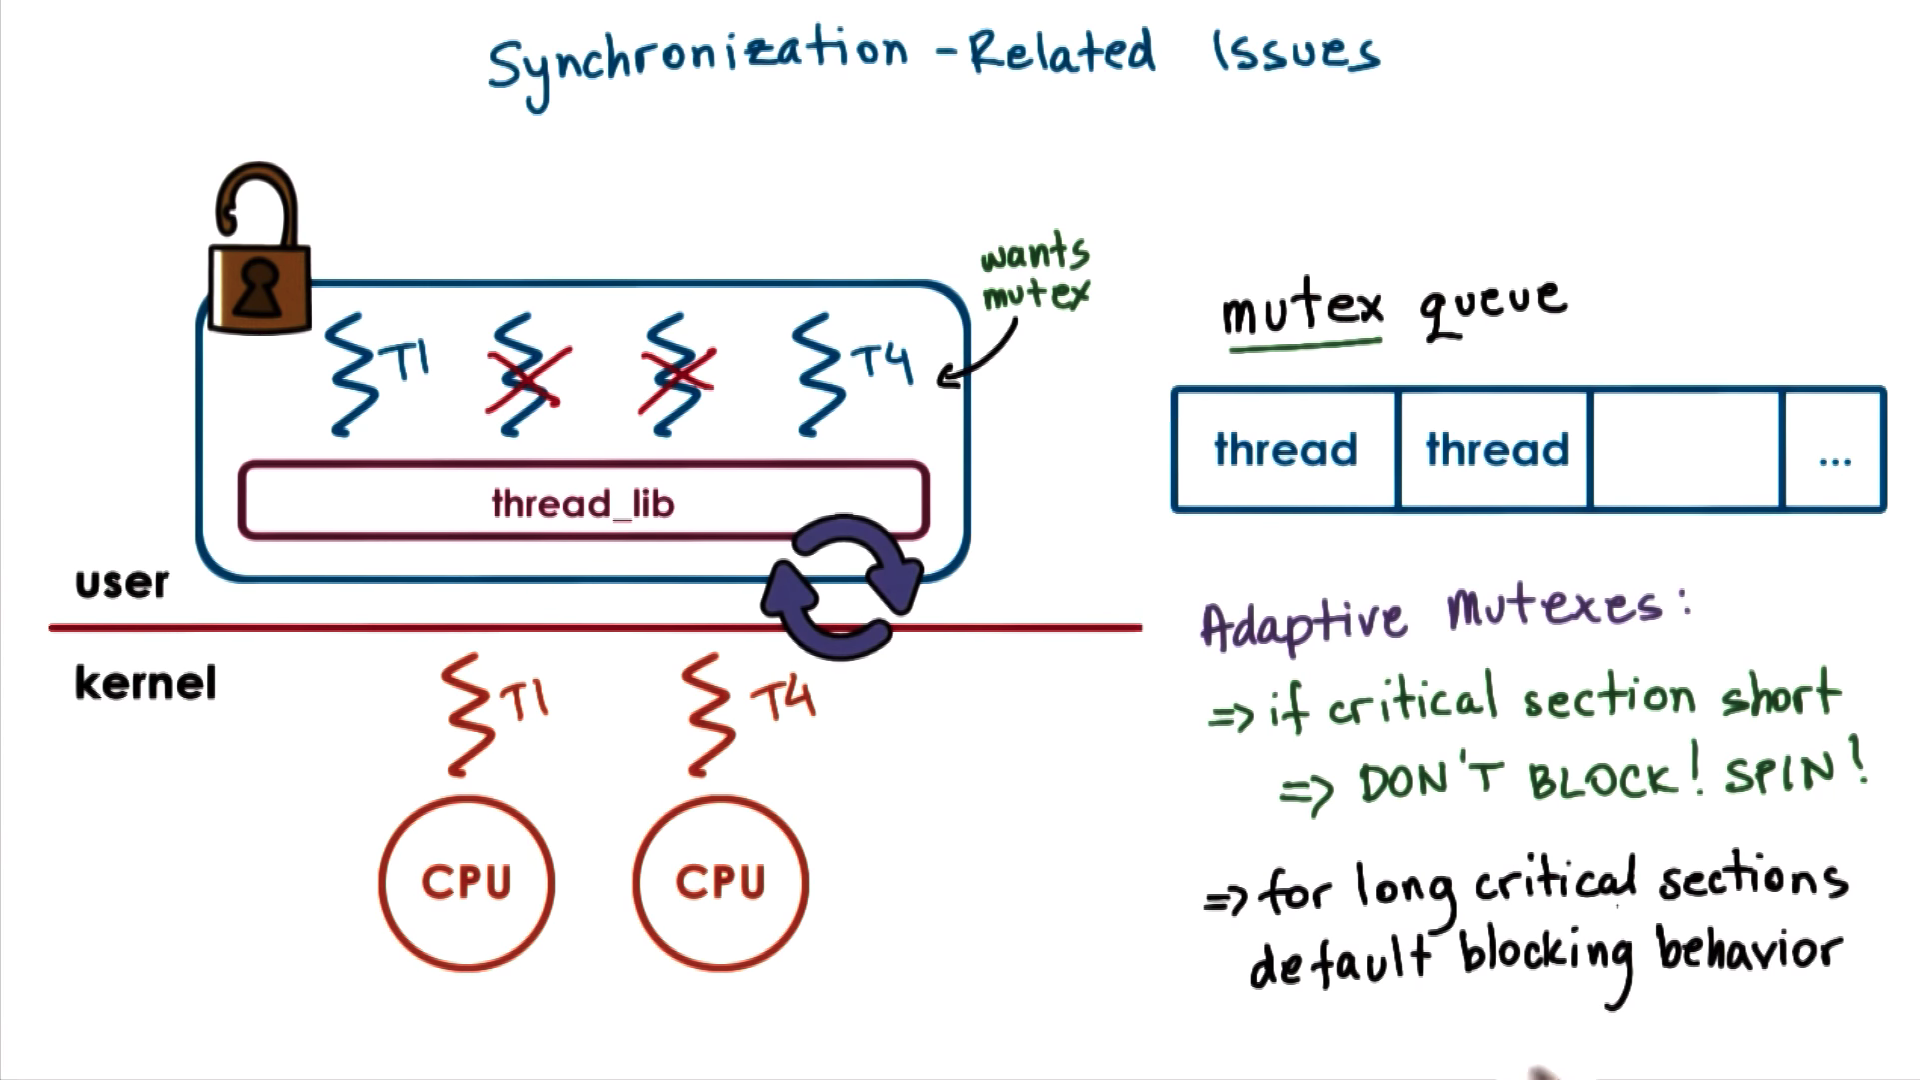 Synchronization - Related Issues
wants
mutex
T1
T4
thread_lib
user
kernel
T1
T4
CPU
CPU
mutex queue
thread
thread
...
Adaptive mutexes:
=> if critical section short
=> DON'T BLOCK! SPIN!
=> for long critical sections
default blocking behavior